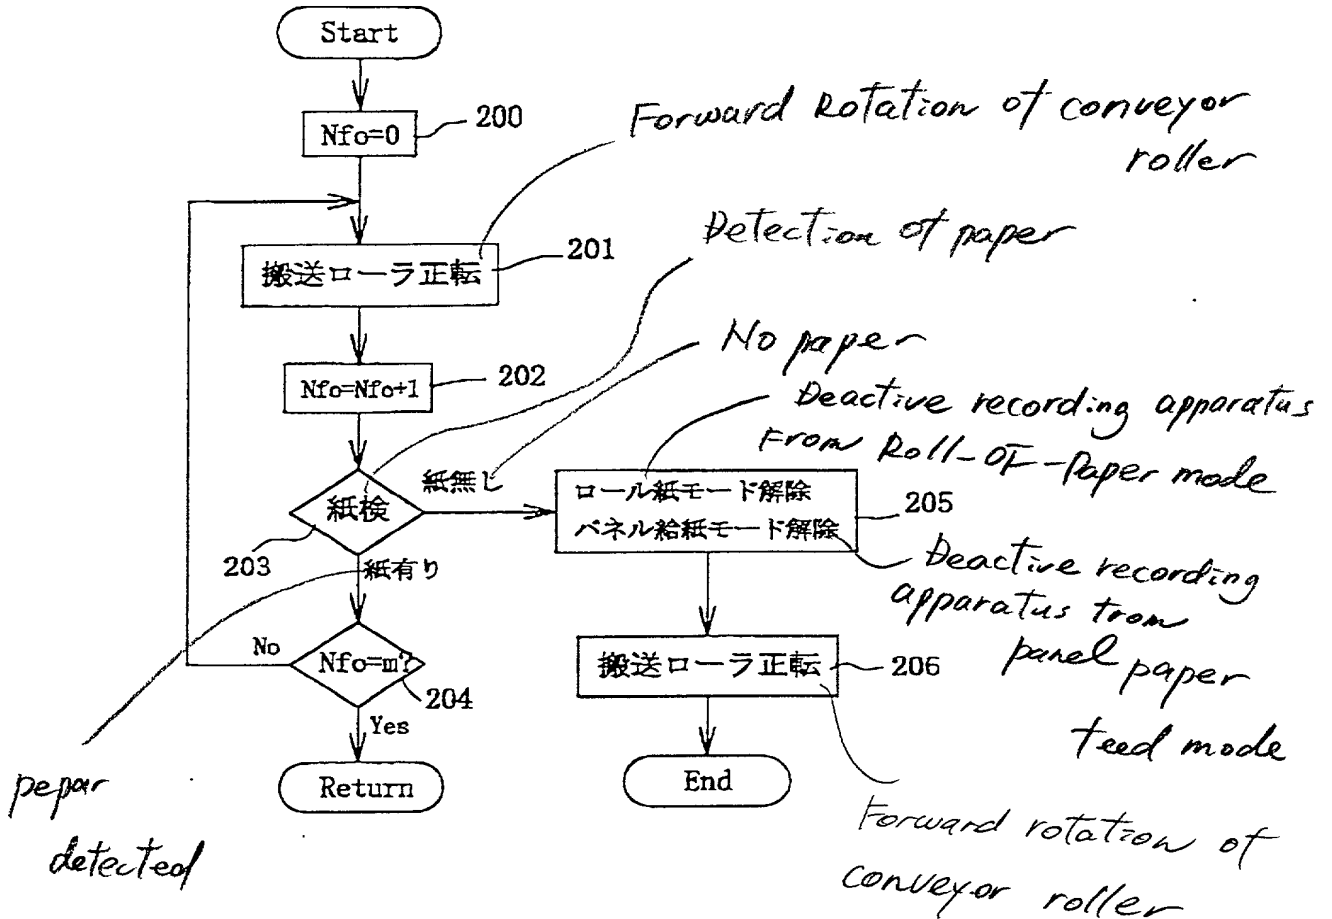 Start
Nfo=0
200
Forward Rotation of conveyor
roller
搬送ローラ正転
201
Detection of paper
Nfo=Nfo+1
202
No paper
Deactive recording apparatus
From Roll-OF-Paper mode
紙検
203
紙無し
ロール紙モード解除
パネル給紙モード解除
205
Deactive recording
apparatus from
panel paper
feed mode
紙有り
Nfo=m?
204
No
Yes
搬送ローラ正転
206
Return
End
pepar
detected
Forward rotation of
conveyor roller